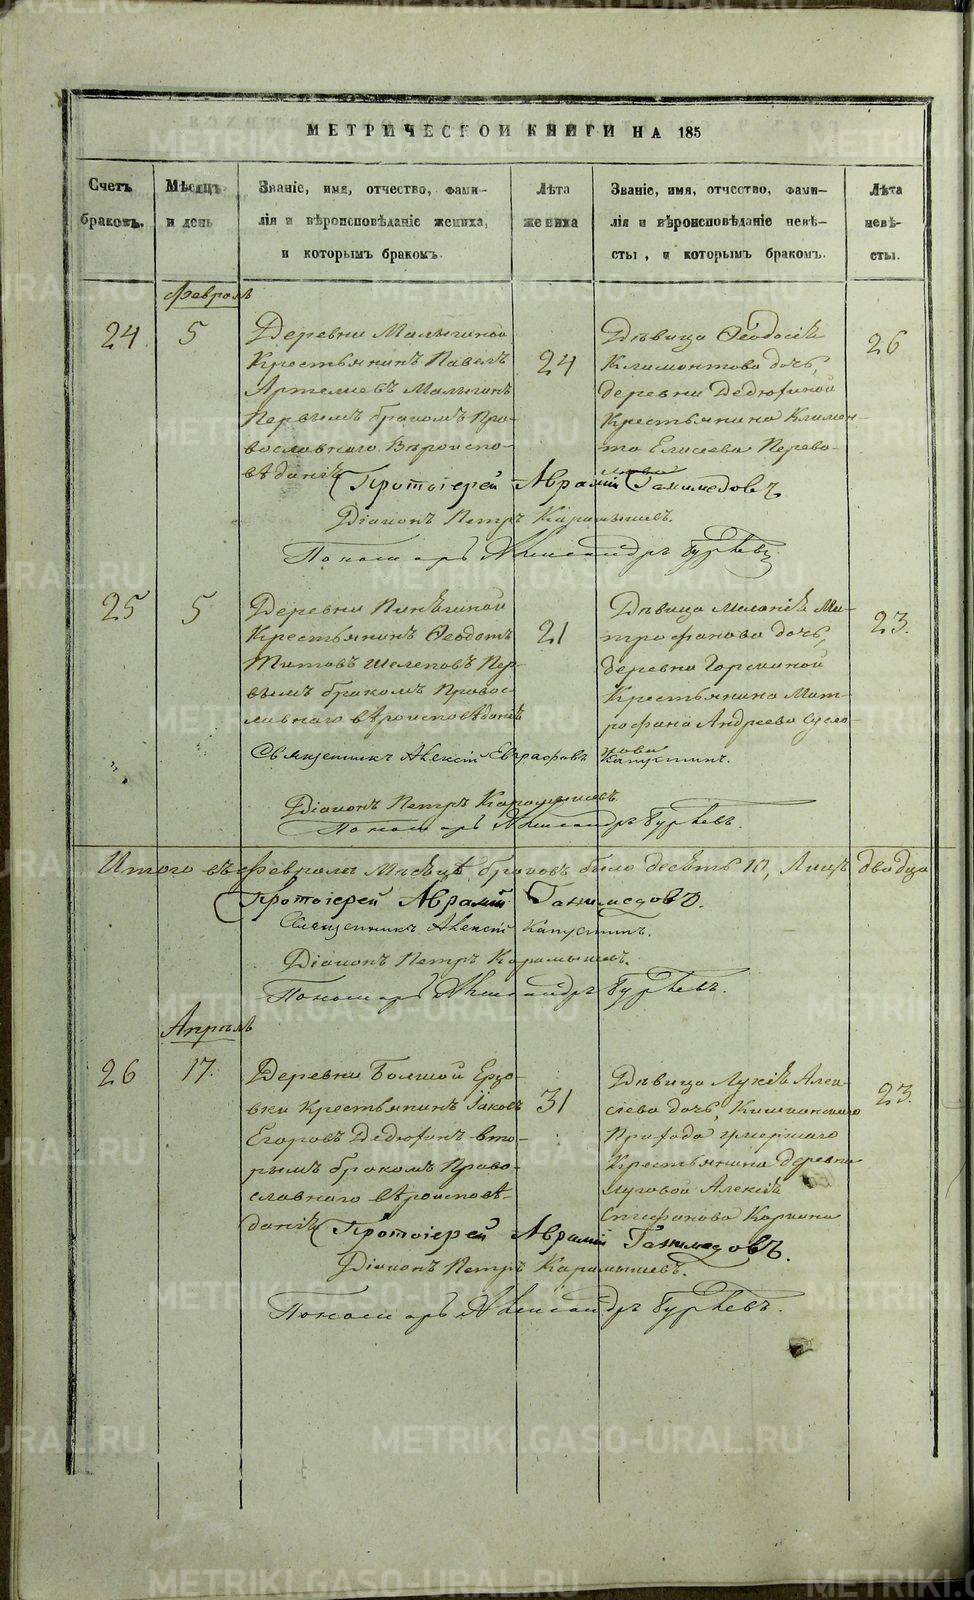 МЕТРИЧЕСКОЙ КНИГИ НА 185
Счетъ браковъ.
Мѣсяцъ и день
Званіе, имя, отчество, фами-
лія и вѣроисповѣданіе жениха,
и которымъ бракомъ.
Лѣта
жениха
Званіе, имя, отчество, фами-
лія и вѣроисповѣданіе невѣ-
сты, и которымъ бракомъ.
Лѣта
невѣ-
сты.
Февраль
24
5
Деревни Малыгиной
Крестьянинъ Павелъ
Артемьевъ Малыгинъ
Первымъ бракомъ Пра-
вославнаго Вѣроиспо-
вѣданія
24
Дѣвица Ѳеодосія
Климентова дочь,
деревни Дедюхиной
Крестьянина Климен-
та Елисеева Перева-
лова
26
Протоіерей Аврамій Ганимедовъ
Діаконъ Петръ Карамышевъ.
Пономарь Александръ Гурьевъ
25
5
Деревни Пинѣгиной
Крестьянинъ Ѳеодотъ
Титовъ Шелеповъ Пер-
вымъ бракомъ Правос-
лавнаго вѣроисповѣданія
21
Дѣвица Маланія Ми-
трофанова дочь,
деревни
Крестьянина Мит-
рофана Андреева Сусло-
нова
23.
Священникъ Алексій Евграфовъ Капустинъ.
Діаконъ Петръ Карамышевъ
Пономарь Александръ Гурьевъ.
Итого въ Февралѣ Мѣсяцѣ браковъ было десять 10, Лицъ двадца
Протоіерей Аврамій Ганимедовъ.
Священникъ Алексій Капустинъ.
Діаконъ Петръ Карамышевъ.
Пономарь Александръ Гурьевъ.
Апрѣль
26
17.
Деревни Большой Ерзо-
вки Крестьянинъ Іаковъ
Егоровъ Дедюхинъ вто-
рымъ бракомъ Право-
славнаго вѣроисповѣ-
данія
31
Дѣвица Лукія Алек-
сіева дочь,
Прихода умершаго
Крестьянина деревни
Луговой Алексія
Стефанова
23.
Протоіерей Аврамій Ганимедовъ.
Діаконъ Петръ Карамышевъ.
Пономарь Александръ Гурьевъ.
METRIKI.GASO-URAL.RU